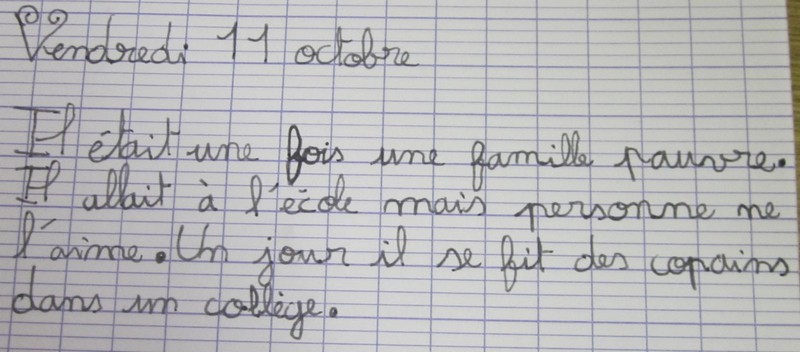 Vendredi 11 octobre
Il était une fois une famille pauvre.
Il allait à l'école mais personne ne
l'aime. Un jour il se fit des copains
dans un collège.